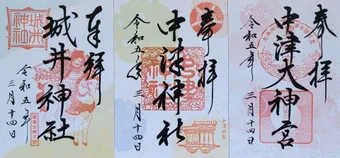 奉拝
城井神社
令和五年
三月十四日
城井神社
奉拝
中津神社
令和五年
三月十四日
奉拝
中津大神宮
令和五年
三月十四日